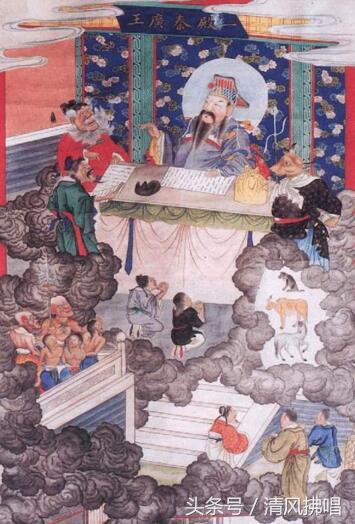 一殿秦廣王
头条号／清风拂唱